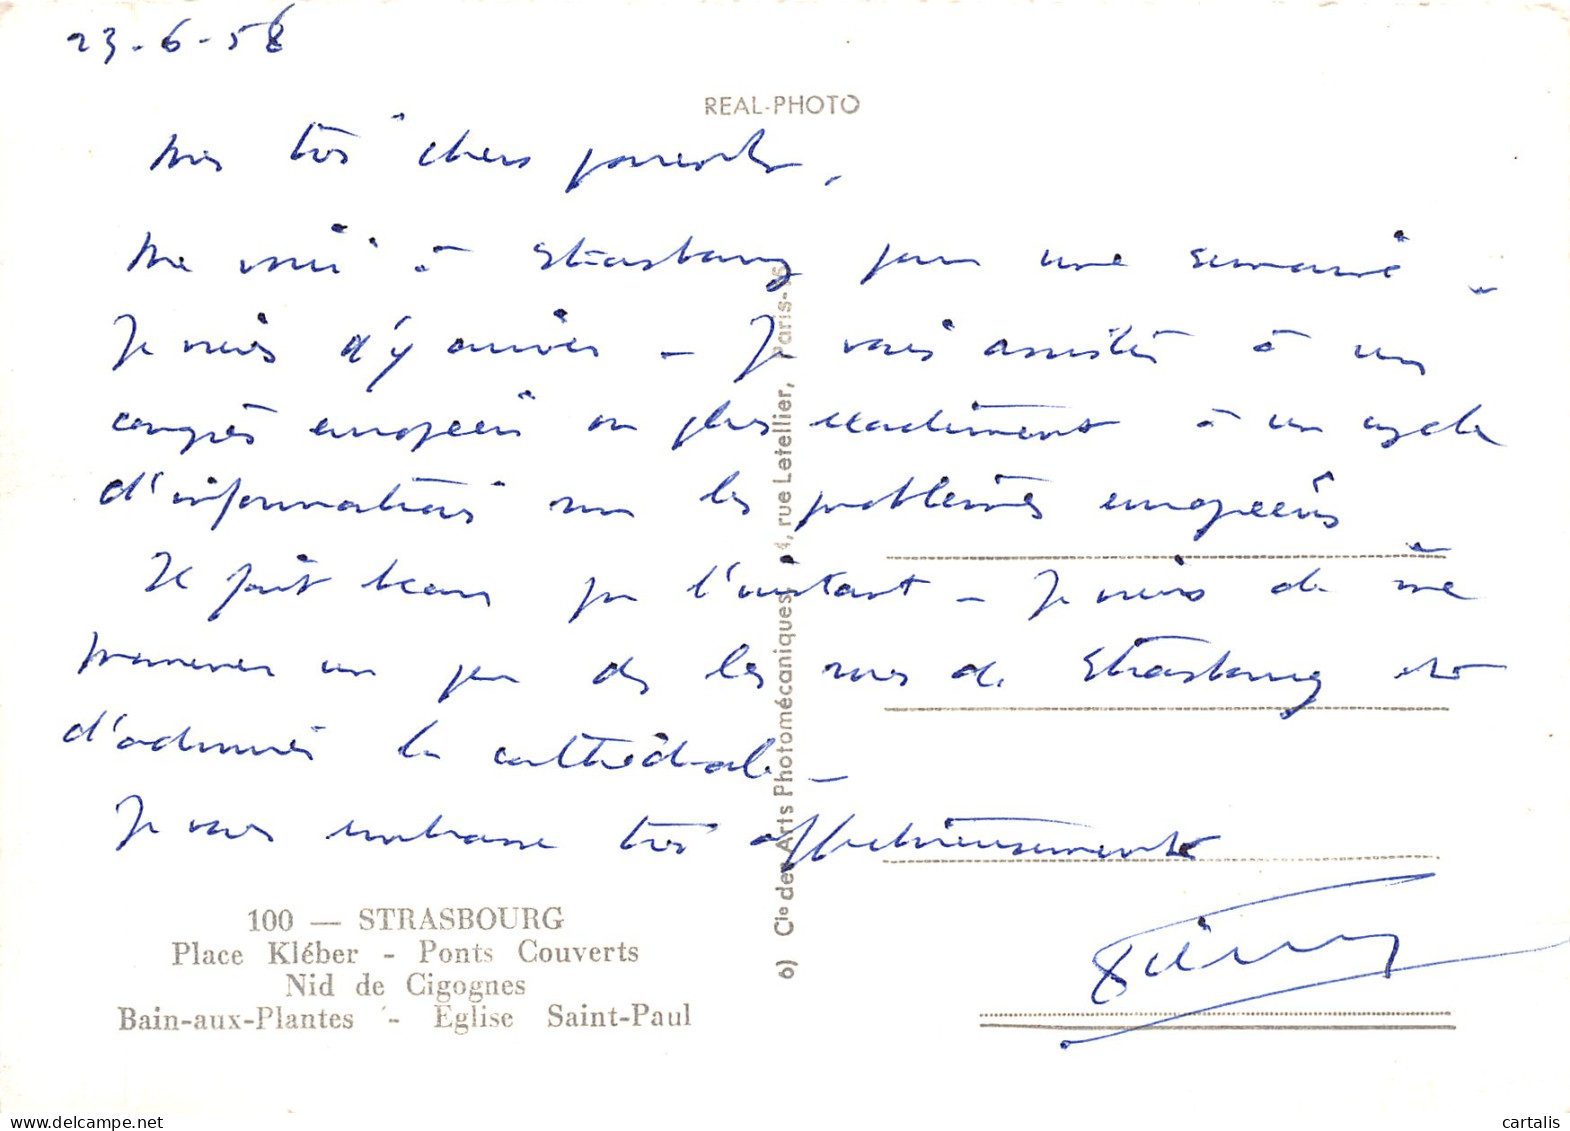 23-6-58
REAL-PHOTO
Mes très chers parents,
Me voici à Strasbourg pour une semaine -
Je viens d'y arriver - Je vais assister à un
congrès européen ou plus exactement à un cycle
d'informations sur les problèmes européens -
Il fait beau pour l'instant - Je viens de me
promener un peu ds les rues de Strasbourg et
d'admirer la cathédrale -
Je vous embrasse très affectueusement
100 — STRASBOURG
Place Kléber - Ponts Couverts
Nid de Cigognes
Bain-aux-Plantes - Eglise Saint-Paul
6) Cie des Arts Photomécaniques, 4, rue Letellier, Paris-15
cartalis